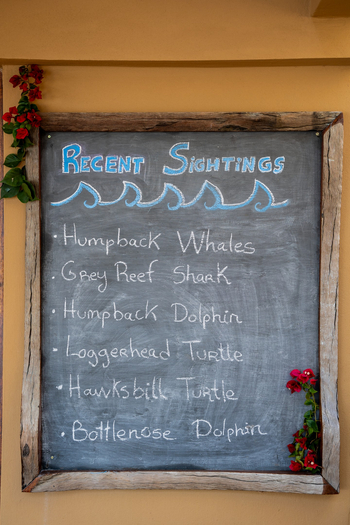 RECENT SIGHTINGS
· Humpback Whales
· Grey Reef Shark
· Humpback Dolphin
· Loggerhead Turtle
· Hawksbill Turtle
· Bottlenose Dolphin